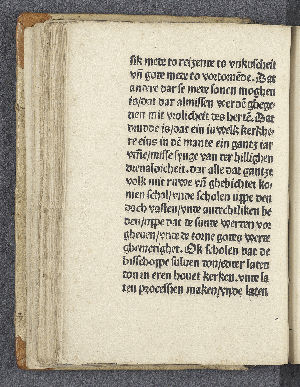 sik mete to reizente to vnkuscheit
vn̄ gote mete to vortomēde. Dat
andere dar se mete sonen moghen
is/dat dar almissen werdē ghege-
uen mit vrolicheit des hertē. Dat
is/dat ein iuwelk kerkhe-
re eins in dē mante ein gantz iar
misse/synge van der hilligen
dar alle dat gantze
volk mit ruwe vn̄ ghebichtet ko-
men schal/vnde scholen vppe den
dach vasten/vnde
vppe dat de sunde werden vor-
gheuen/vnde de torne godes werde
Ok scholen dat de
bisschoppe suluen don/edder laten
don in eren houet kerken. vnde la-
ten processien maken/vnde laten